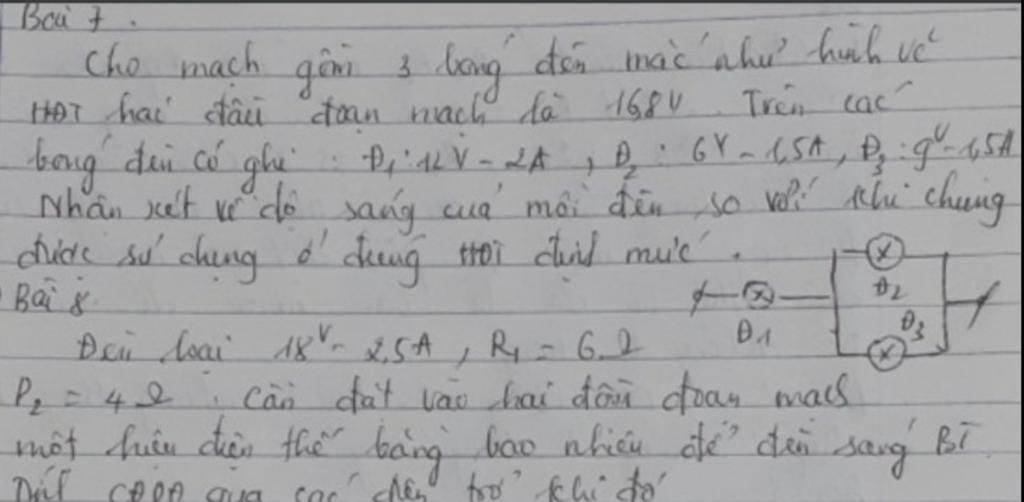 Bài 7.
Cho mạch gồm 3 bóng đèn mắc như hình vẽ
HĐT hai đầu đoạn mạch là 16,8V. Trên các
bóng đèn có ghi: Đ1: 12V - 2A, Đ2: 6V - 1,5A, Đ3: 9V - 1,5A
Nhận xét về độ sáng của mỗi đèn so với khi chúng
được sử dụng ở đúng HĐT định mức.
Đ2
Đ1
Đ3
Bài 8
Đèn loại 18V - 2,5A, R1 = 6Ω
R2 = 4Ω. Cần đặt vào hai đầu đoạn mạch
một hiệu điện thế bằng bao nhiêu để đèn sáng BT.
CĐDĐ qua các điện trở khi đó